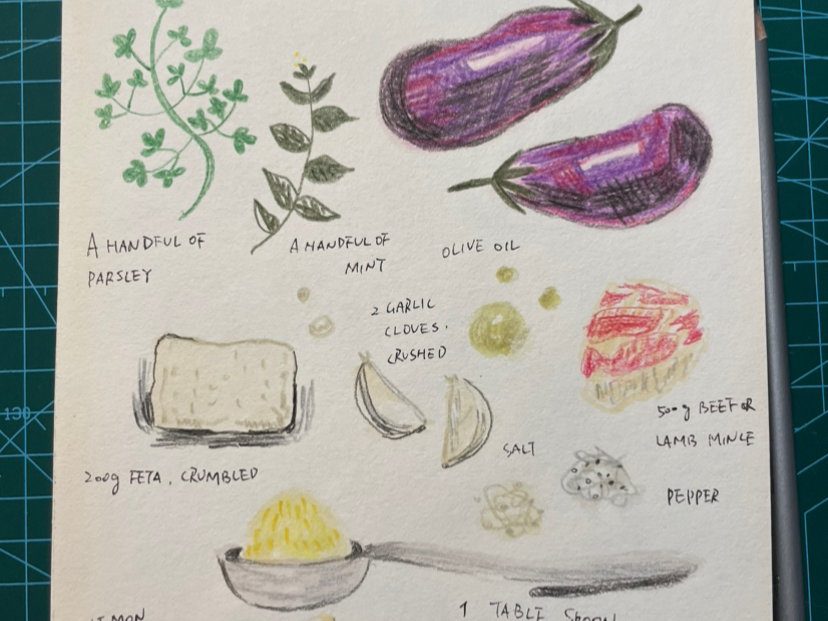 A HANDFUL OF
PARSLEY
A HANDFUL OF
MINT
OLIVE OIL
2 GARLIC
CLOVES.
CRUSHED
500g BEEF OR
LAMB MINCE
SALT
200g FETA, CRUMBLED
PEPPER
1 TABLE SPOON
130